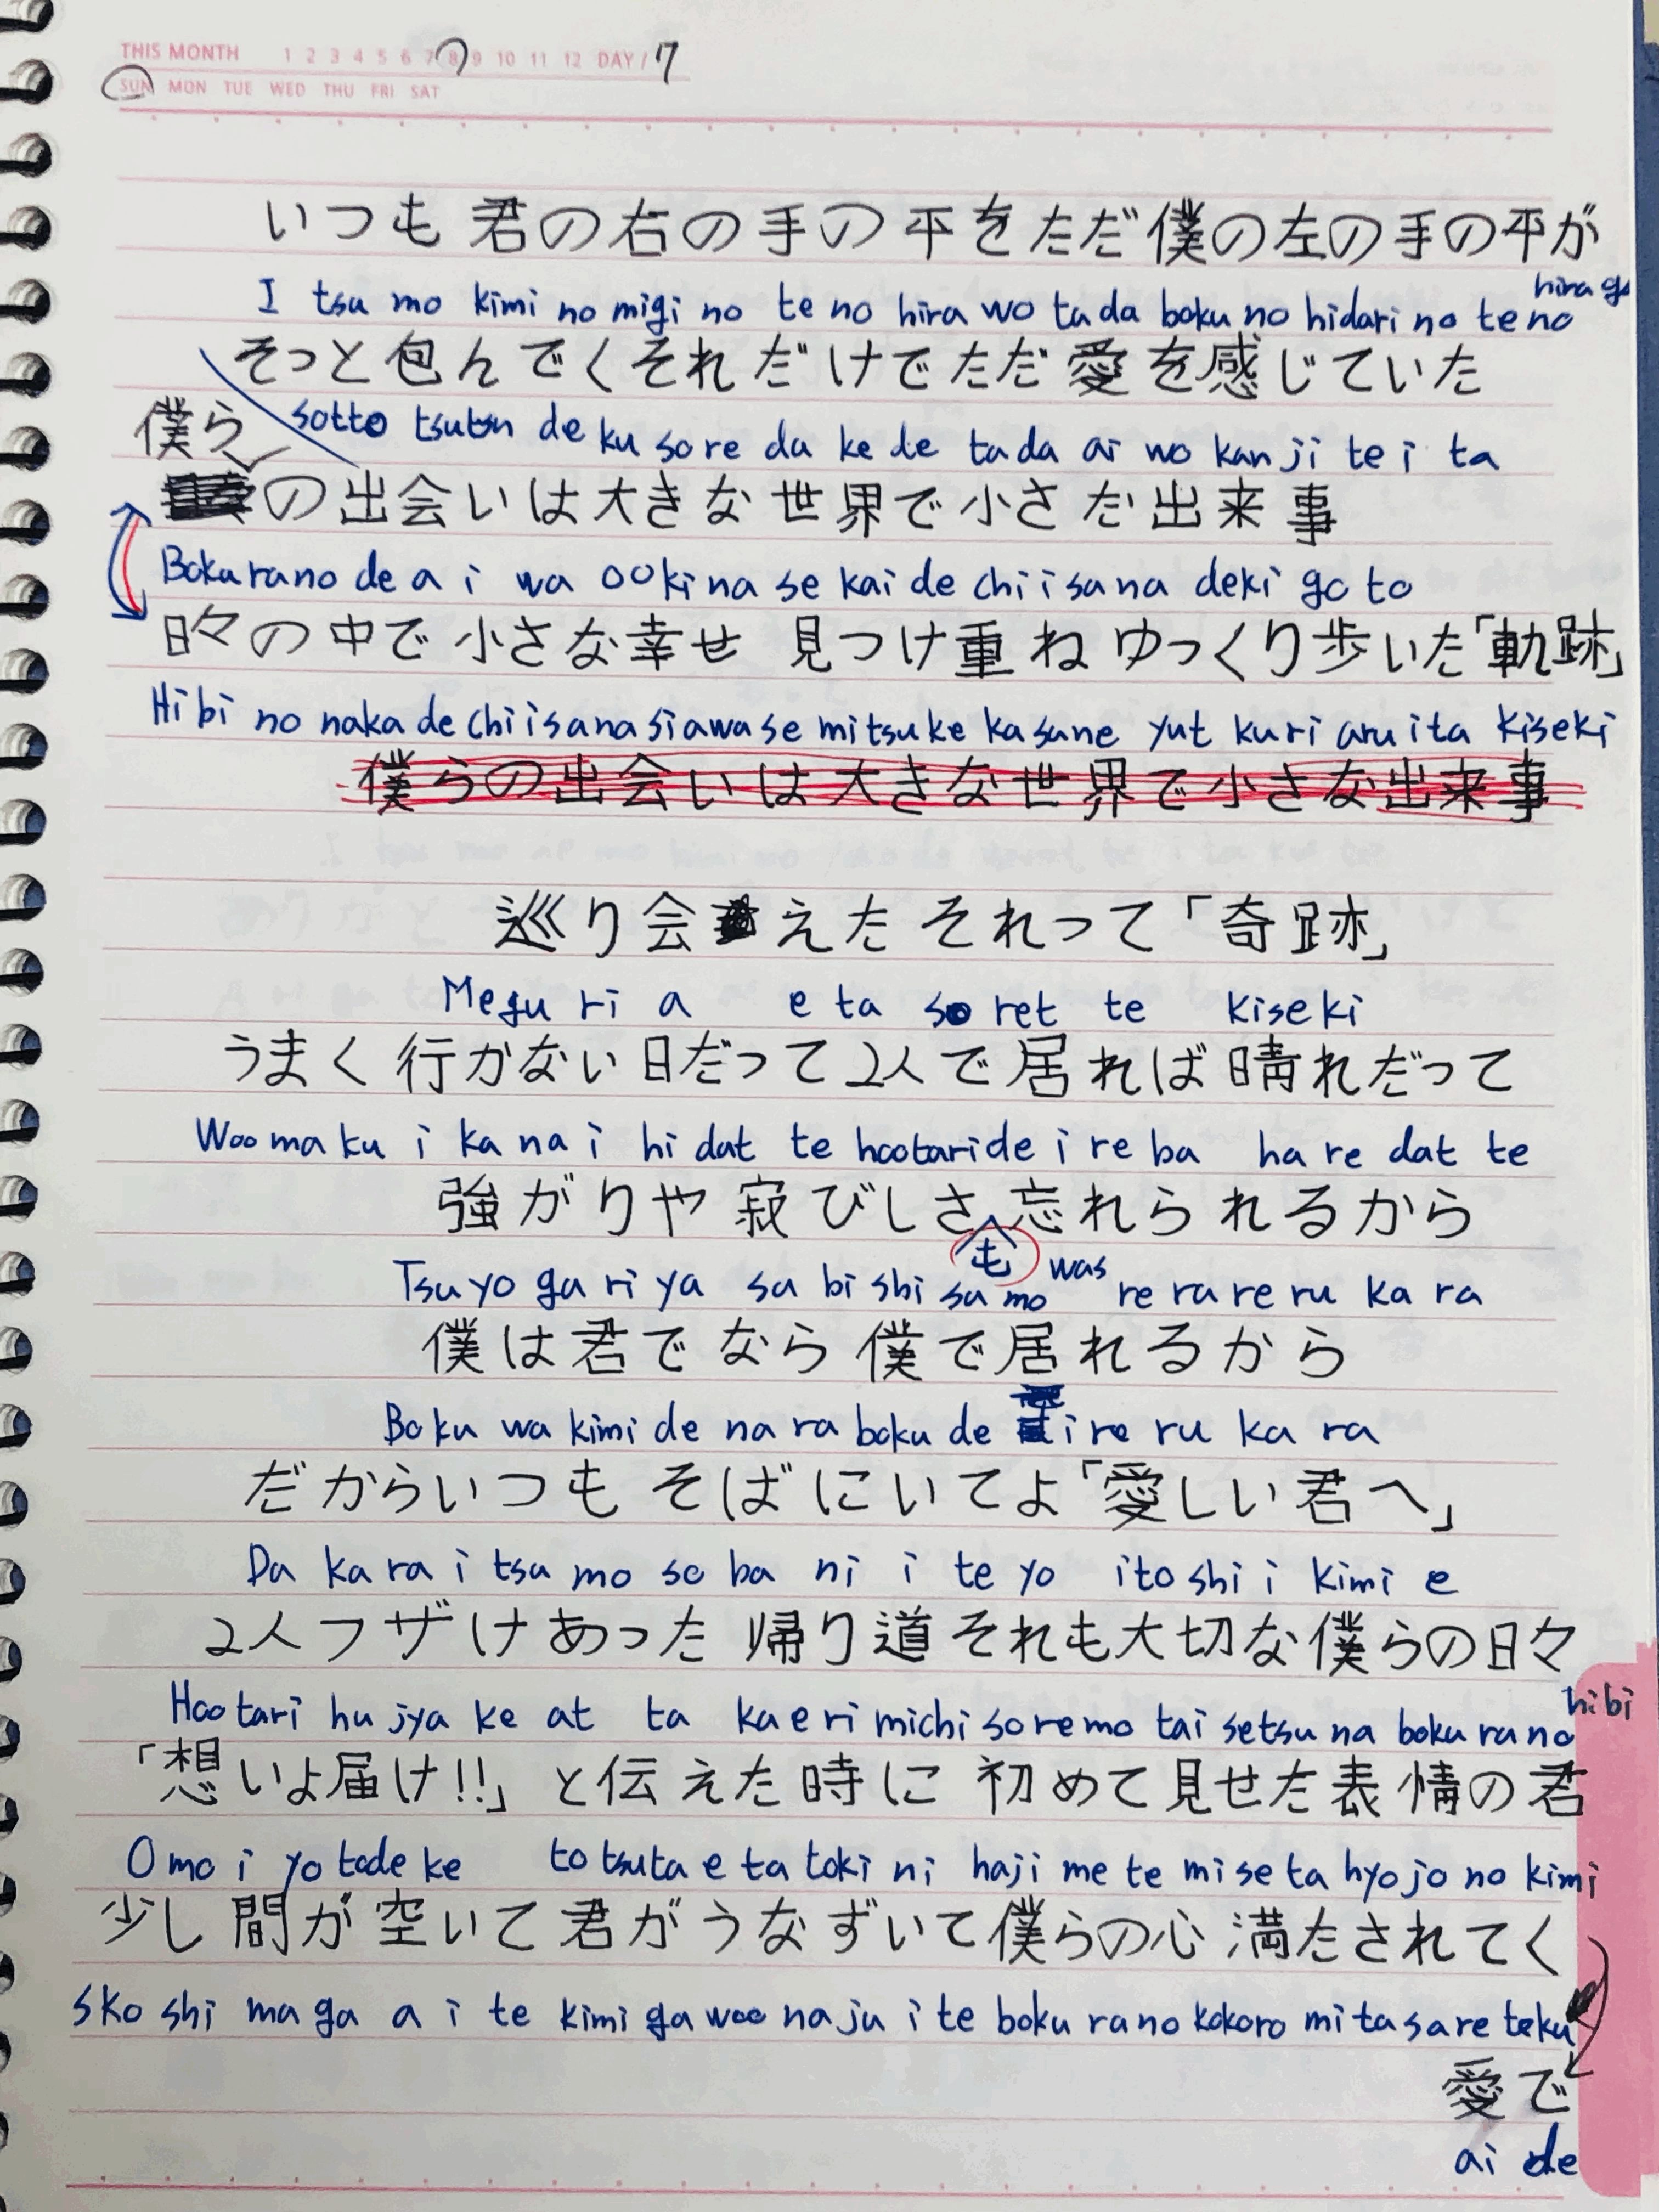 THIS MONTH 1 2 3 4 5 6 7 8 9 10 11 12 DAY / 7
SUN MON TUE WED THU FRI SAT
いつも君の右の手の平をただ僕の左の手の平が
I tsu mo kimi no migi no te no hira wo tada boku no hidari no te no hira ga
そっと包んでくそれだけでただ愛を感じていた
sotto tsutsun de ku so re da ke de ta da ai wo kan ji te i ta
僕らの出会いは大きな世界で小さな出来事
Bokurano de a i wa ookina se kai de chiisana deki go to
日々の中で小さな幸せ 見つけ重ね ゆっくり歩いた「軌跡」
Hibi no naka de chiisana siawase mitsuke kasane yut kuri aruita kiseki
僕らの出会いは大きな世界で小さな出来事
巡り会えた それって「奇跡」
Megu ri a e ta so ret te kiseki
うまく行かない日だって2人で居れば晴れだって
Woo ma ku i ka na i hi dat te hootari de i re ba ha re dat te
強がりや寂びしさも忘れられるから
Tsu yo ga ri ya sa bi shi sa mo was re ra re ru ka ra
僕は君でなら僕で居れるから
Boku wa kimi de na ra boku de i re ru ka ra
だからいつもそばにいてよ「愛しい君へ」
Da ka ra i tsu mo so ba ni i te yo ito shi i kimi e
2人フザけあった帰り道それも大切な僕らの日々
Hootari hu jya ke at ta kaeri michi so re mo tai setsu na boku ra no hibi
「想いよ届け!!」と伝えた時に 初めて見せた表情の君
Omo i yo todo ke to tsuta e ta toki ni haji me te mi se ta hyo jo no kimi
少し間が空いて君がうなずいて僕らの心満たされてく
Sko shi ma ga a i te kimi ga woo na ju i te boku ra no kokoro mi ta sa re teku
愛で
ai de